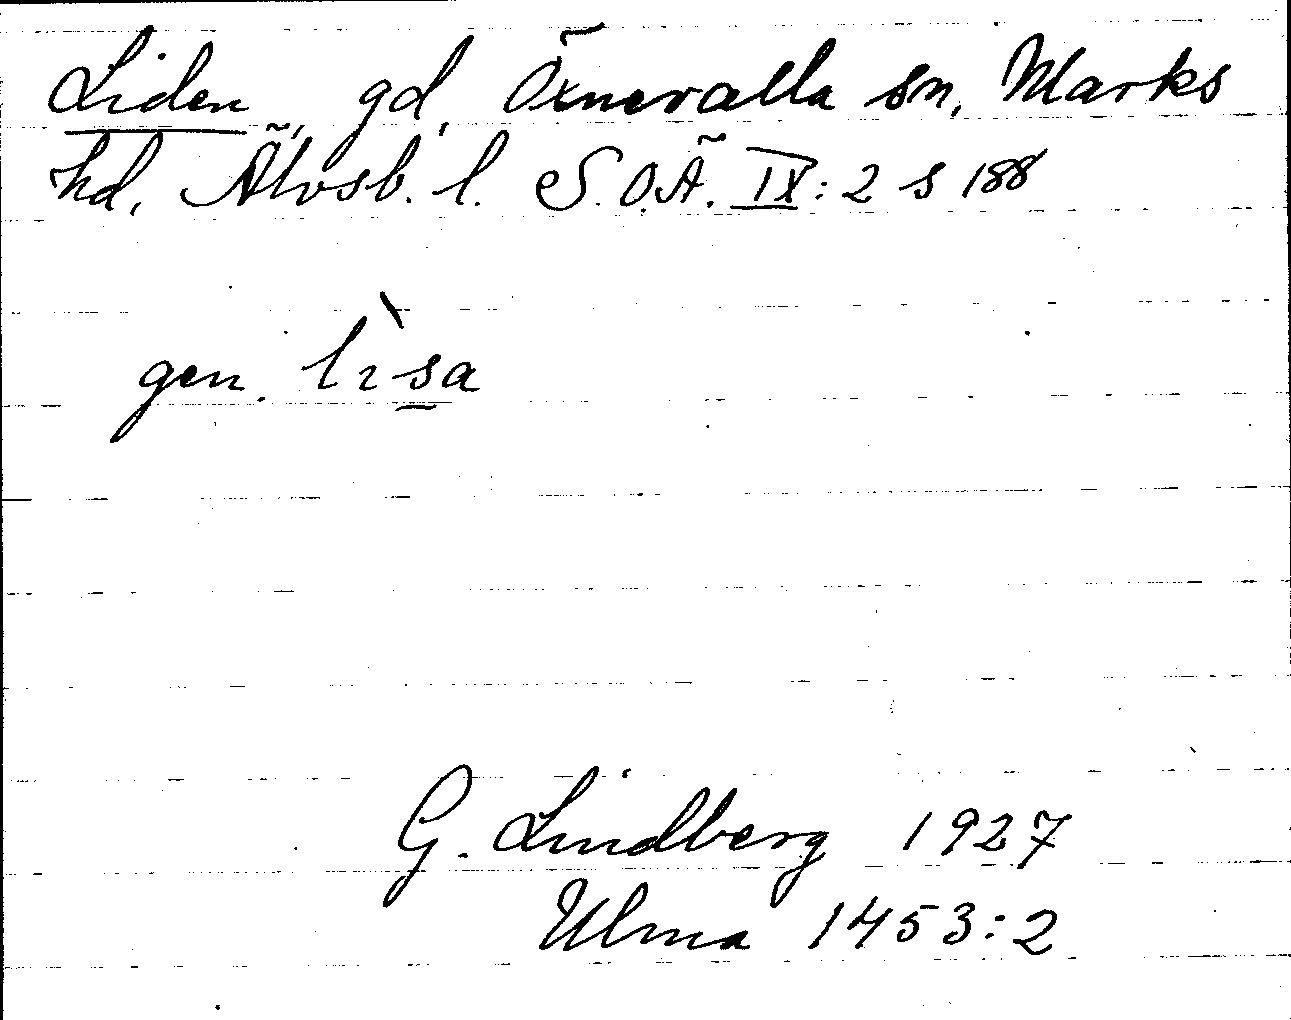 Liden, gd, Öxnevalla sn, Marks
hd, Älvsb. l. S.O.Ä. IX: 2 s 188
gen. lìsa
G. Lindberg 1927
Ulma 1453:2